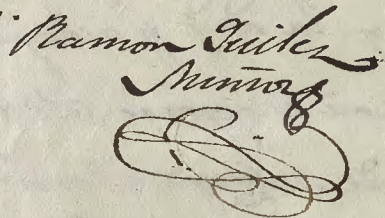 Ramon Guiler
Muñoz